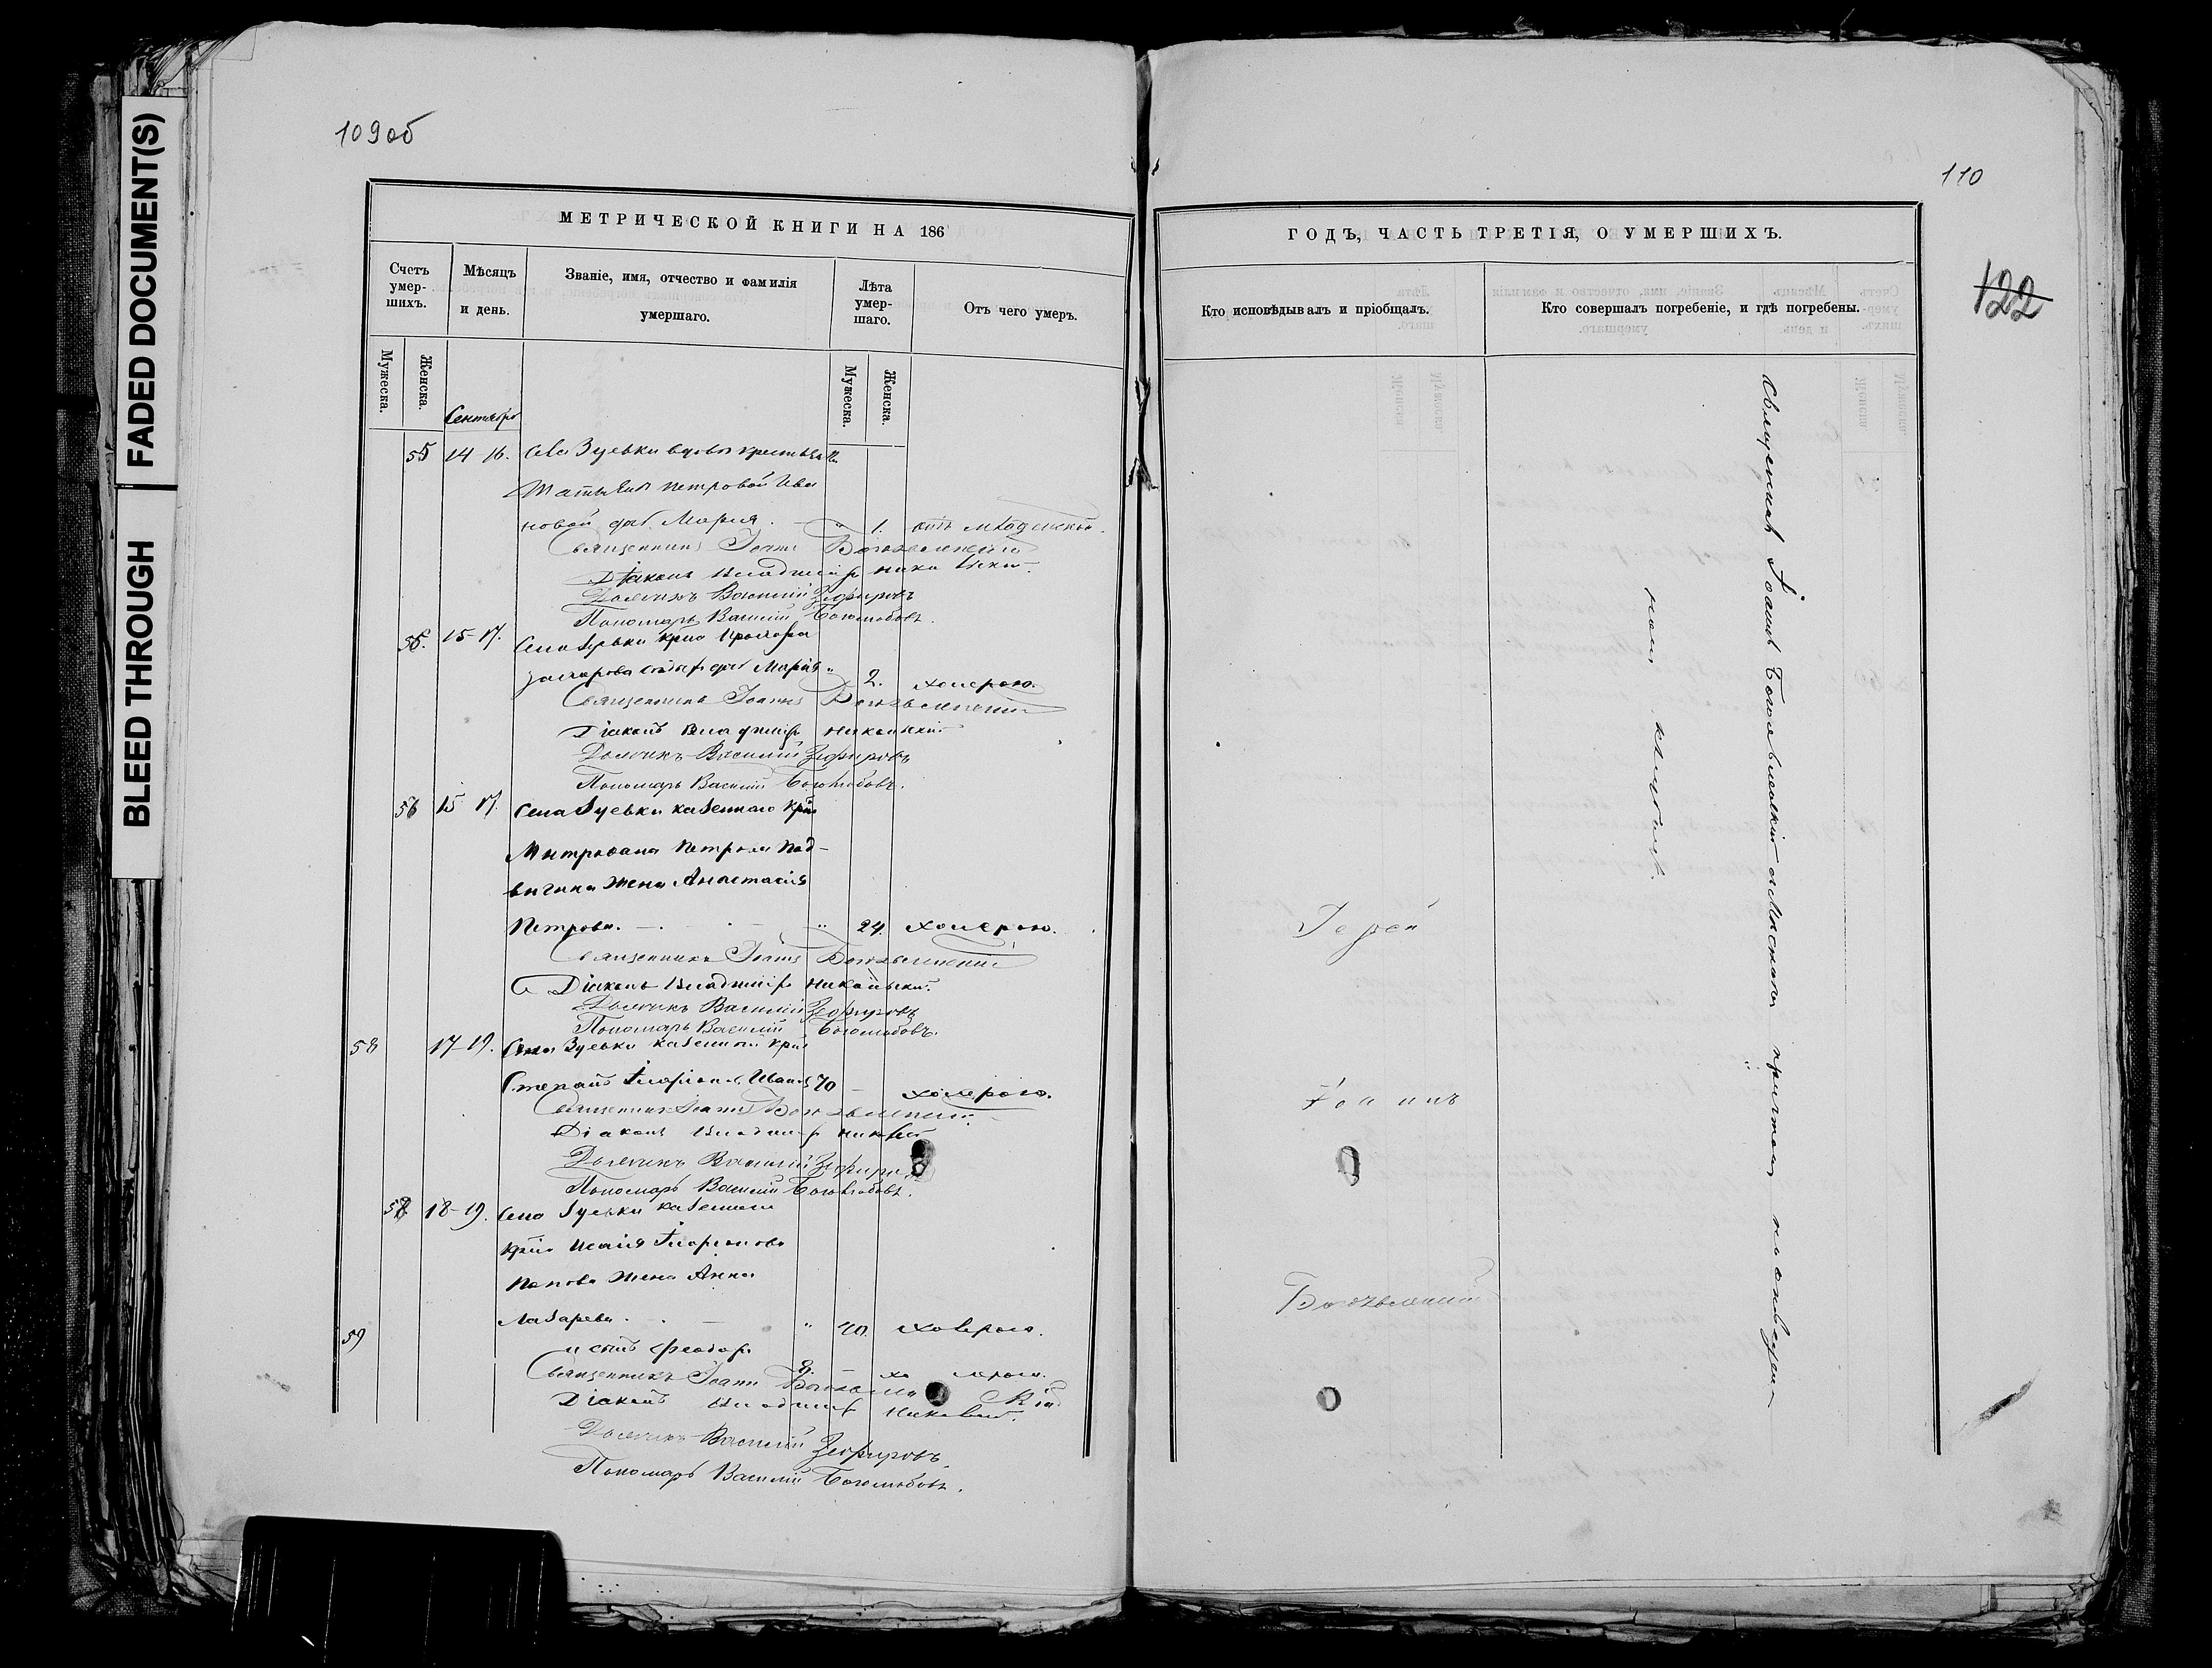 FADED DOCUMENT(S)
BLEED THROUGH
109об
МЕТРИЧЕСКОЙ КНИГИ НА 186
Счетъ умер-шихъ.
Мѣсяцъ и день.
Званіе, имя, отчество и фамилія умершаго.
Лѣта умер-шаго.
Отъ чего умеръ.
Мужеска.
Женска.
Мужеска.
Женска.
Сентябрь
55 14 16. Села Зуевки вдовы крестьян
Татьяны Петровой Ива
новой доч. Марія. " 1. отъ младенской.
Священникъ Іоаннъ Богоявленскій
Діаконъ Владиміръ Никольскій
Дьячикъ Василій Зефировъ
Пономарь Василій Боголюбовъ.
15-17. Села Зуевки крна
Захарова доч Марія " 2. холерою.
Священникъ Іоаннъ Богоявленскій
Діаконъ Владиміръ Никольскій
Дьячикъ Василій Зефировъ
Пономарь Василій Боголюбовъ.
56 15 17. Села Зуевки казеннаго крна
Митрофана Петрова Под-
вигина жена Анастасія
Петрова. " 24. холерою.
Священникъ Іоаннъ Богоявленскій
Діаконъ Владиміръ Никольскій.
Дьячикъ Василій Зефировъ
Пономарь Василій Боголюбовъ.
58 17-19. Села Зуевки казенный крнъ
Степанъ Иларіонов 70 — холерою.
Священникъ Іоаннъ Богоявленскій
Діаконъ Владиміръ
Дьячикъ Василій Зефиров
Пономарь Василій Боголюбовъ.
18-19. Села Зуевки казеннаго
крна Исаія Иларіонова
Попова жена Анна
Лазарева. " 40. холерою.
59 и сынъ Феодоръ
холерою.
Священникъ Іоаннъ Богоявленскій
Діаконъ Владиміръ
Дьячикъ Василій Зефировъ.
Пономарь Василій Боголюбовъ.
110
122
ГОДЪ, ЧАСТЬ ТРЕТІЯ, О УМЕРШИХЪ.
Кто исповѣдывалъ и пріобщалъ.
Кто совершалъ погребеніе, и гдѣ погребены.
Іерей
Іоаннъ
Богоявленскій
Священникъ Іоаннъ Богоявленскій съ причтомъ на
кладбищѣ.